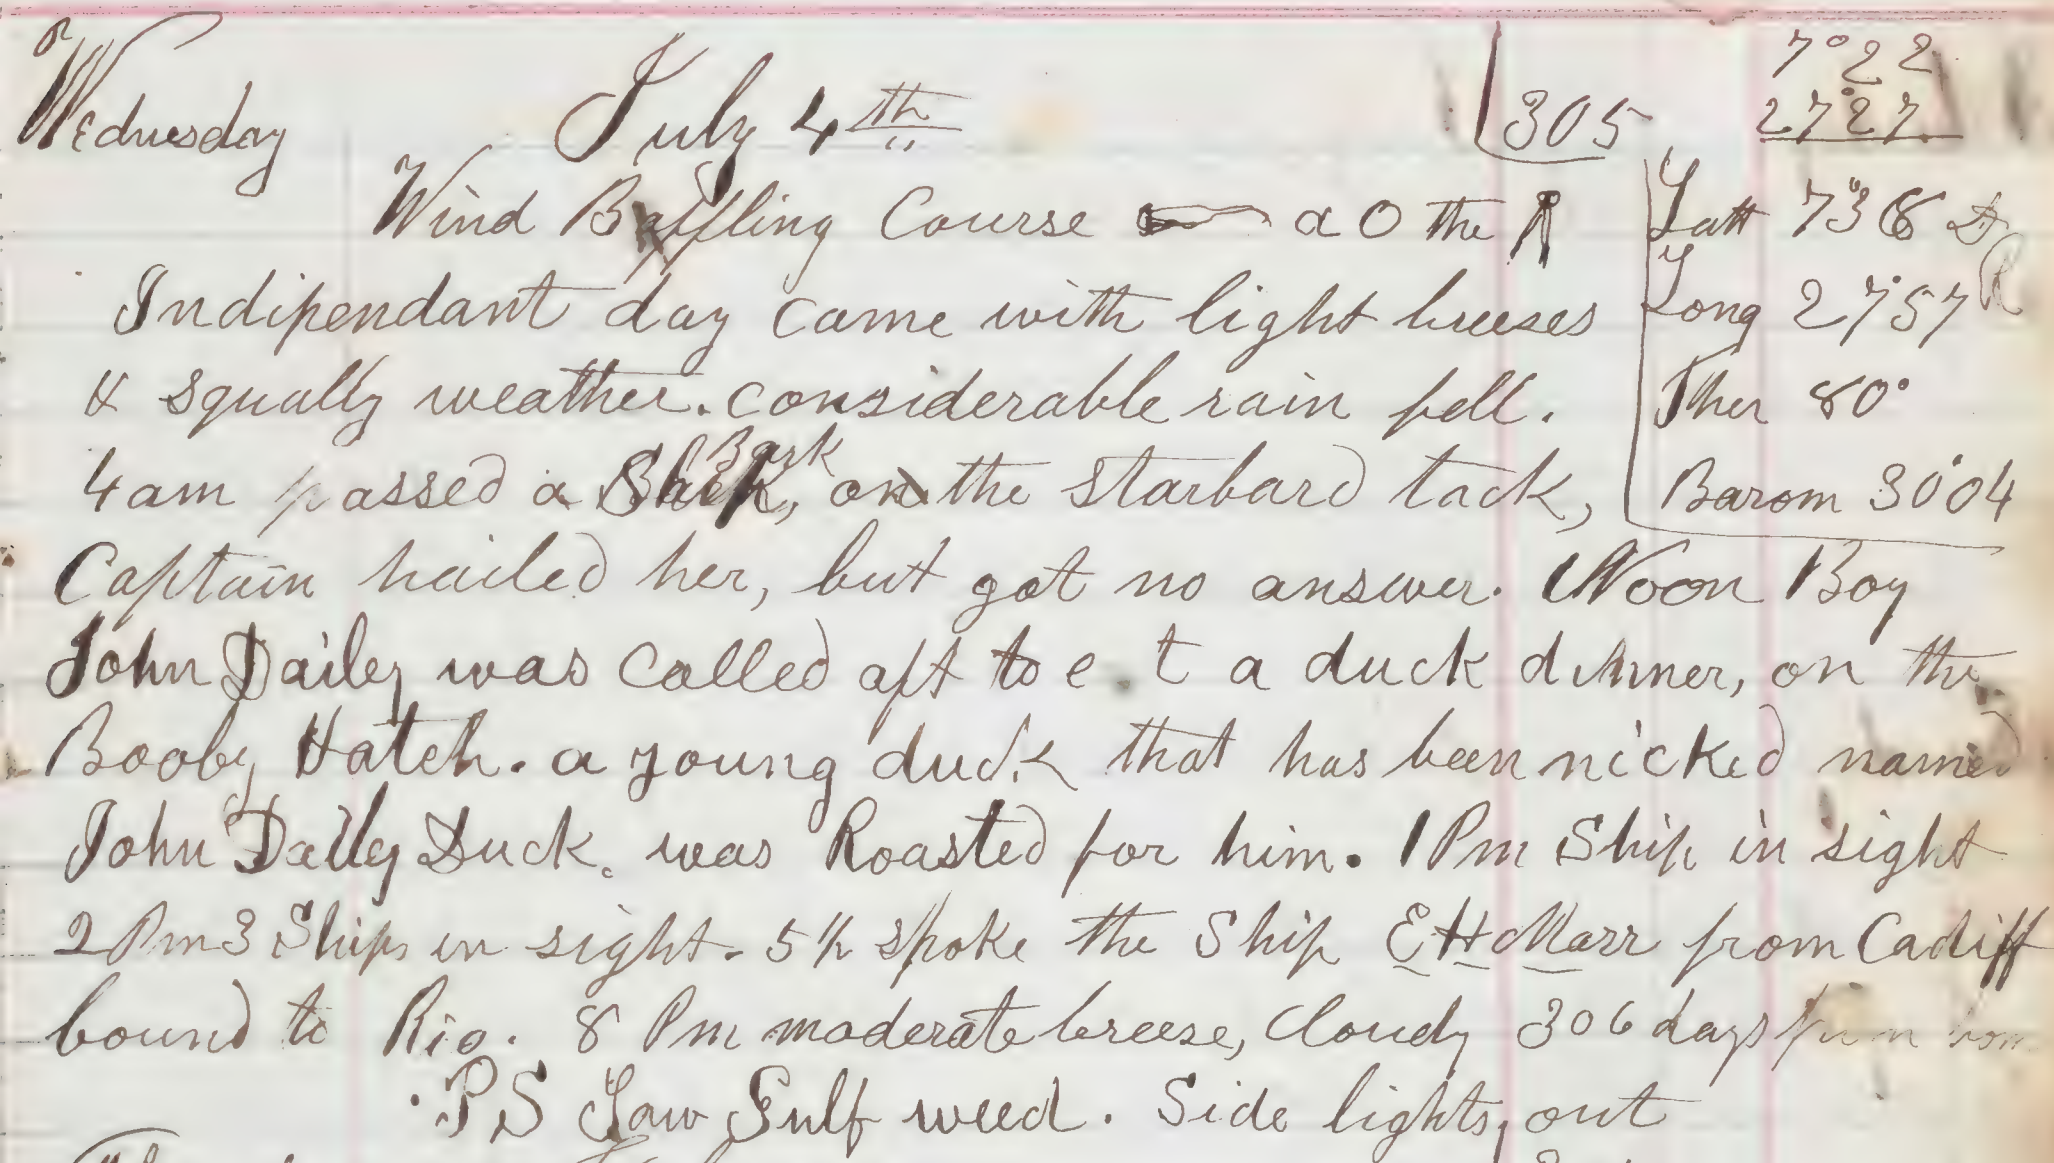 7° 22
Wednesday July 4th 305 27°27
Wind Baffling Course a O the Latt 7°36
Indipendant day came with light breeses Long 27°57
& squally weather. considerable rain fell. Ther 80°
4 am passed a Bark, on the starbard tack, Barom 30°04
Captain hailed her, but got no answer. Noon Boy
John Dailey was called aft to e t a duck dinner, on the
Booby Hatch. a young duck that has been nicked named
John Dailey Duck. was Roasted for him. 1 Pm Ship in sight
2 Pm 3 Ships in sight. 5 ½ spoke the Ship E H Marr from Cadiff
bound to Rio. 8 Pm moderate breese, Cloudy 306 days from
PS Saw Gulf weed. Side lights, out